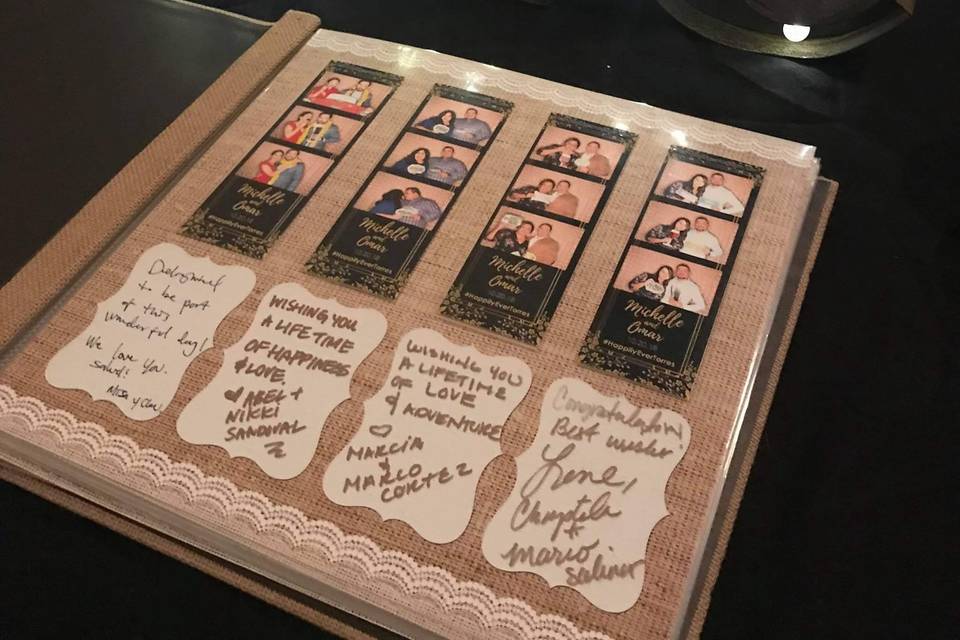 Michelle
and
Omar
10.20.18
#HappilyEverTorres
Michelle
and
Omar
#HappilyEverTorres
Michelle
and
Omar
10.20.18
#HappilyEverTorres
Michelle
and
Omar
10.20.18
#HappilyEverTorres
Delighted
to be part
of this
wonderful day!
We love you.
WISHING YOU
A LIFETIME
OF HAPPINESS
& LOVE.
♡ ABEL +
NIKKI
SANDOVAL
WISHING YOU
A LIFETIME
OF LOVE
& ADVENTURE
♡
MARCIA
&
MARCO
CORTEZ
Congratulation
Best wishes
Irene,
&
Mario
Salinas